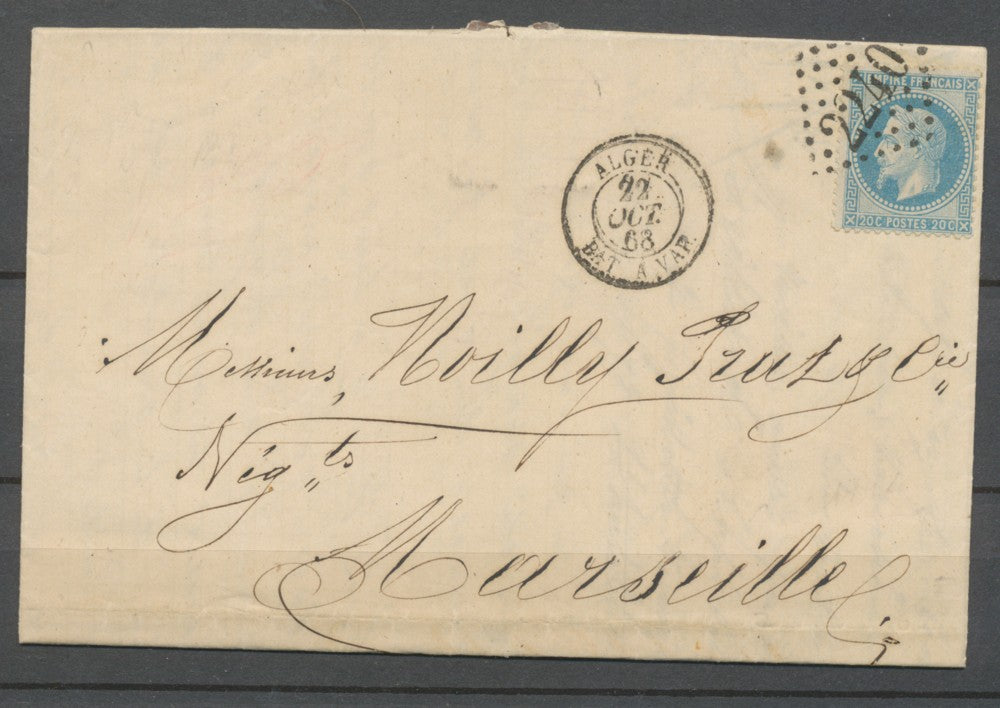 2240
EMPIRE FRANÇAIS
20C POSTES 20C
ALGER
22
OCT.
68
BAT. A VAP.
Messieurs Noilly Prat & Cie
Négts
Marseille